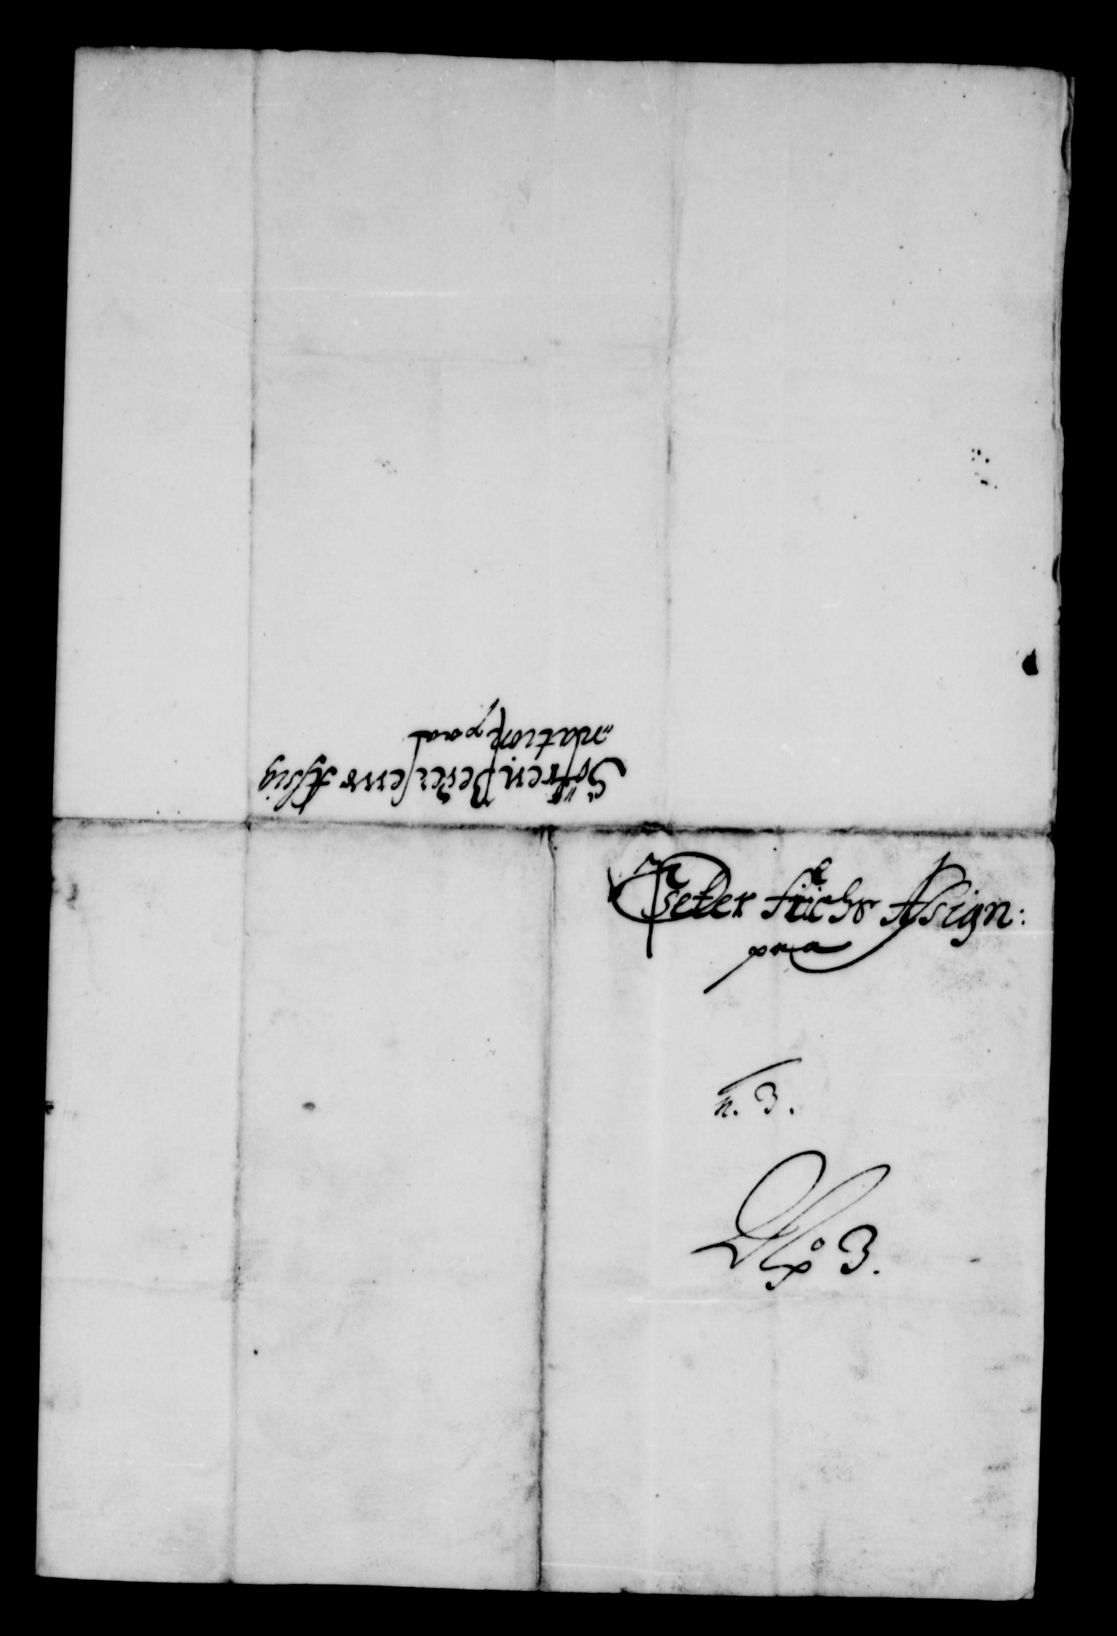 Sören Pedersens Assig
nation paa
Peter Fuchs Assign:
paa
n. 3.
No 3.